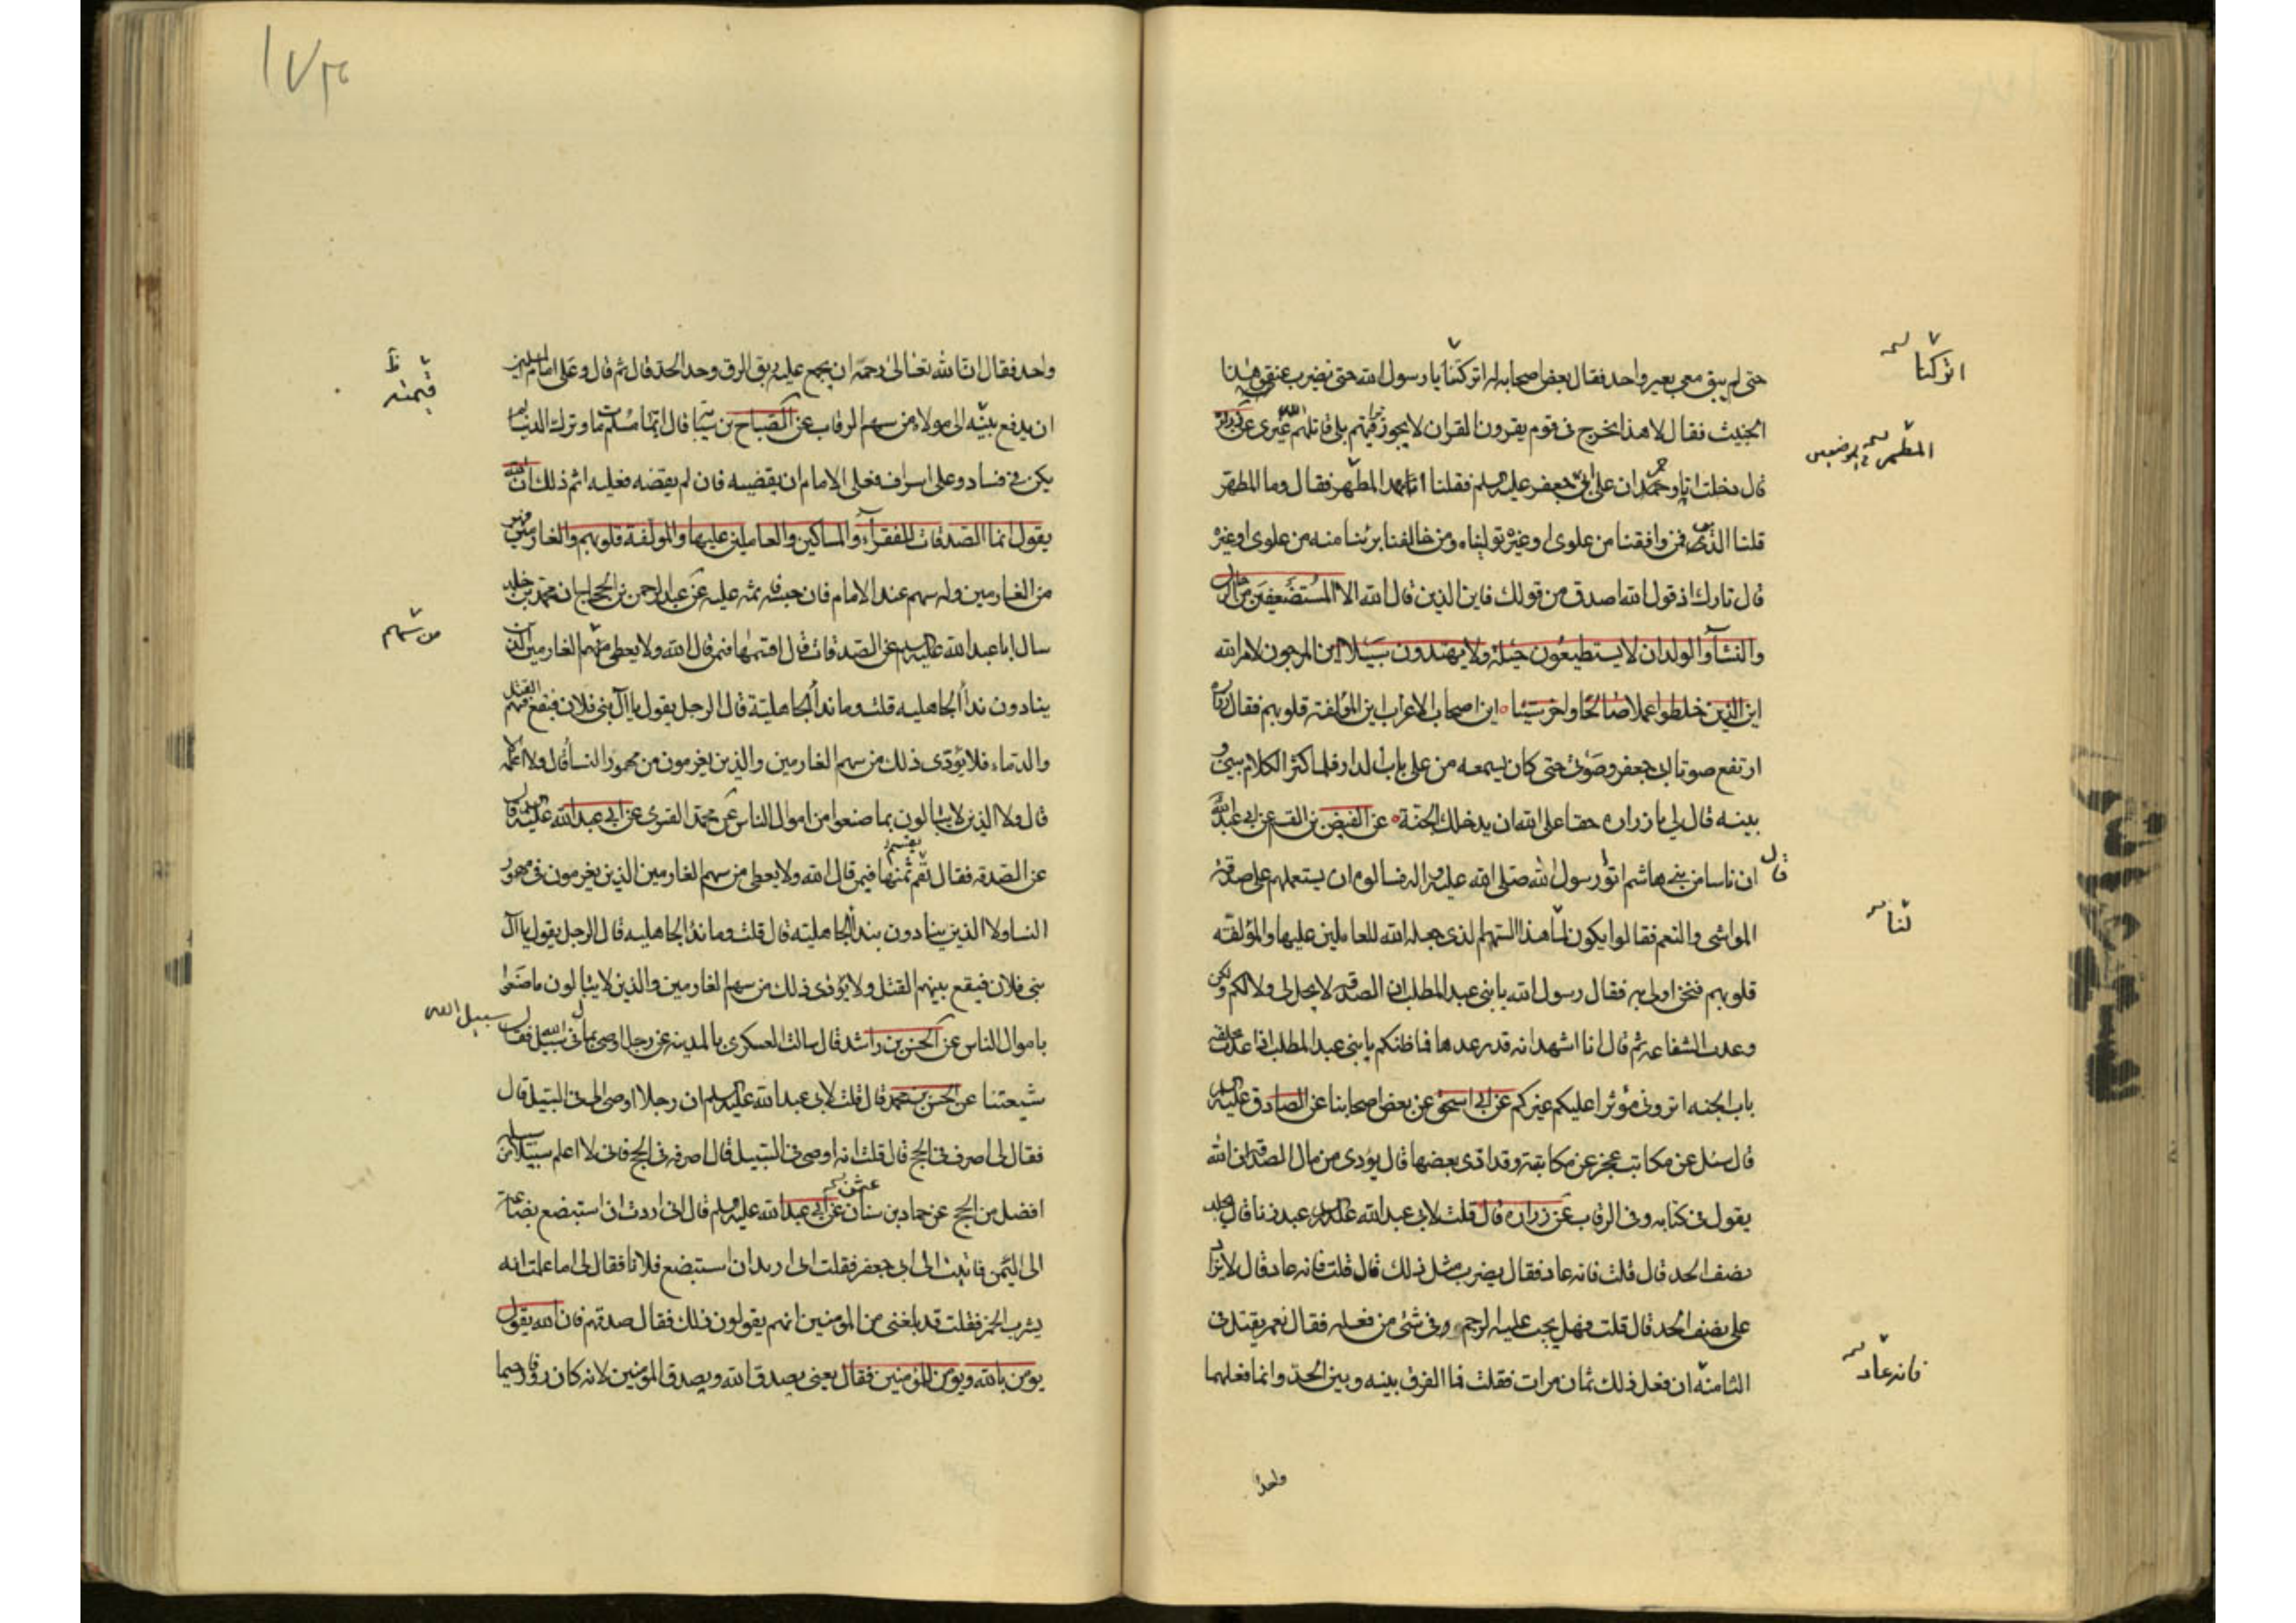 حتى لم يبق معى بعير واحد فقال بعض اصحابه اتركنا يا رسول الله حتى نضرب عنق هذا
الخبيث فقال لا هذا يخرج فى قوم يقرون القران لا يجوز تراقيهم بلى قاتلهم الله غيرى عن زرارة
قال دخلت انا وحمران على ابى جعفر عليه السلم فقلنا انا بهذا المطهر فقال وما المطهر
قلنا الدين فمن وافقنا من علوى او غيره توليناه ومن خالفنا برئنا منه من علوى او غيره
قال يا زراره قول الله اصدق من قولك فاين الذين قال الله الا المستضعفين من الرجال
والنسآء والولدان لا يستطيعون حيلة ولا يهتدون سبيلا اين المرجون لامر الله
اين الذين خلطوا عملا صالحا واخر سيئا اين اصحاب الاعراف اين المؤلفة قلوبهم فقال زراره
ارتفع صوت ابى جعفر وصوتى حتى كان يسمعه من على باب الدار فلما كثر الكلام بينى و
بينه قال لى يا زراره حقا على الله ان يدخلك الجنة عن العيص بن القسم عن ابى عبد الله
قال ان ناسا من بنى هاشم اتوا رسول الله صلى الله عليه واله فسالوه ان يستعملهم على صدقة
المواشى والنعم فقالوا يكون لنا هذا السهم الذى جعله الله للعاملين عليها والمؤلفة
قلوبهم فنحن اولى به فقال رسول الله يا بنى عبد المطلب ان الصدقة لا يحل لى ولا لكم ولكن
وعدت الشفاعه ثم قال انا اشهد انه قد وعدها فما ظنكم يا بنى عبد المطلب اذا اخذت بحلقة
باب الجنه اترونى مؤثرا عليكم غيركم عن ابى اسحق عن بعض اصحابنا عن الصادق عليه السلم
قال سئل عن مكاتب عجز عن مكاتبته وقد ادى بعضها قال يؤدى من مال الصدقة ان الله
يقول فى كتابه وفى الرقاب عن زراره قال قلت لابى عبد الله عليه السلم عبد زنا قال يجلد
نصف الحد قال قلت فانه عاد فقال يضرب مثل ذلك قال قلت فانه عاد قال لا يزاد
على نصف الحد قال قلت فهل يجب عليه الرجم فى شئ من فعله فقال نعم يقتل فى
الثامنة ان فعل ذلك ثمان مرات فقلت فما الفرق بينه وبين الحد وانما فعلهما
واحد
اتركنا
المطهر فى موضعين
لنا
فانه عاد
١٧٣
واحد فقال ان الله تعالى رحمه ان يجمع عليه ربق الرق وحد الحد قال ثم قال وعلى امام المسلمين
ان يدفع ثمنه الى مولاه من سهم الرقاب عن الصباح بن سيابة قال ايما مسلم مات وترك دينا لم
يكن فى فساد وعلى اسراف فعلى الامام ان يقضيه فان لم يقضه فعليه اثم ذلك ان الله
يقول انما الصدقات للفقرآء والمساكين والعاملين عليها والمؤلفة قلوبهم والغارمين فهو
من الغارمين وله سهم عند الامام فان حبسه فاثمه عليه عن عبد الرحمن بن الحجاج ان محمد بن خلد
سال ابا عبد الله عليه السلم عن الصدقات قال اقسمها فيمن قال الله ولا يعطى من سهم الغارمين الذين
ينادون ندآ الجاهليه قلت وما ندآ الجاهلية قال الرجل يقول يا آل بنى فلان فيقع فيهم القتل
والدماء فلا يؤدى ذلك من سهم الغارمين والذين يغرمون من مهور النسا قال ولا اعلمه
قال ولا الذين لا يبالون بما صنعوا من اموال الناس عن محمد القسرى عن ابى عبد الله عليه السلم قال
عن الصدقه فقال اقسمها فيمن قال الله ولا يعطى من سهم الغارمين الذين يغرمون فى مهور
النسا ولا الذين ينادون بندآ الجاهلية قال قلت وما ندآ الجاهليه قال الرجل يقول يا آل
بنى فلان فيقع بينهم القتل ولا يؤدى ذلك من سهم الغارمين والذين لا يبالون ما صنعوا
باموال الناس عن الحسن بن راشد قال سالت العسكرى بالمدينه عن رجل اوصى بمال فى سبيل الله فقال سبيل الله
شيعتنا عن الحسن بن محمد قال قلت لابى عبد الله عليه السلم ان رجلا اوصى الى فى السبيل قال
فقال لى اصرف فى الحج قال قلت انه اوصى فى السبيل قال اصرفه فى الحج فانى لا اعلم سبيلا من سبله
افضل من الحج عن حماد بن سنان عن ابى عبد الله عليه السلم قال انى اردت ان استبضع بضاعة
الى اليمن فاتيت الى ابى جعفر فقلت انى اريد ان استبضع فلانا فقال لى اما علمت انه
يشرب الخمر فقلت قد بلغنى من المؤمنين انهم يقولون ذلك فقال صدقهم فان الله يقول
يؤمن بالله ويؤمن للمؤمنين فقال يعنى يصدق الله ويصدق المؤمنين لانه كان رؤفا رحيما
من سهم